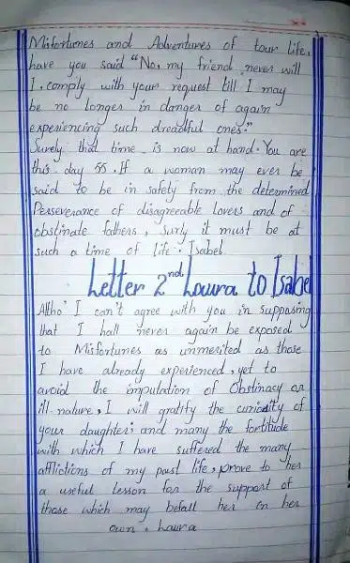 Misfortunes and Adventures of tour life,
have you said "No, my friend never will
I comply with your request till I may
be no longer in danger of again
experiencing such dreadful ones."
Surely that time is now at hand. You are
this day 55. If a woman may ever be
said to be in safety from the determined
Perseverance of disagreeable Lovers and of
obstinate fathers, surly it must be at
such a time of life. Isabel
Letter 2nd Laura to Isabel
Altho' I can't agree with you in supposing
that I hall never again be exposed
to Misfortunes as unmerited as those
I have already experienced, yet to
avoid the imputation of Obstinacy or
ill-nature, I will gratify the curiosity of
your daughter; and many the fortitude
with which I have suffered the many
afflictions of my past life, prove to her
a useful lesson for the support of
those which may befall her in her
own, Laura